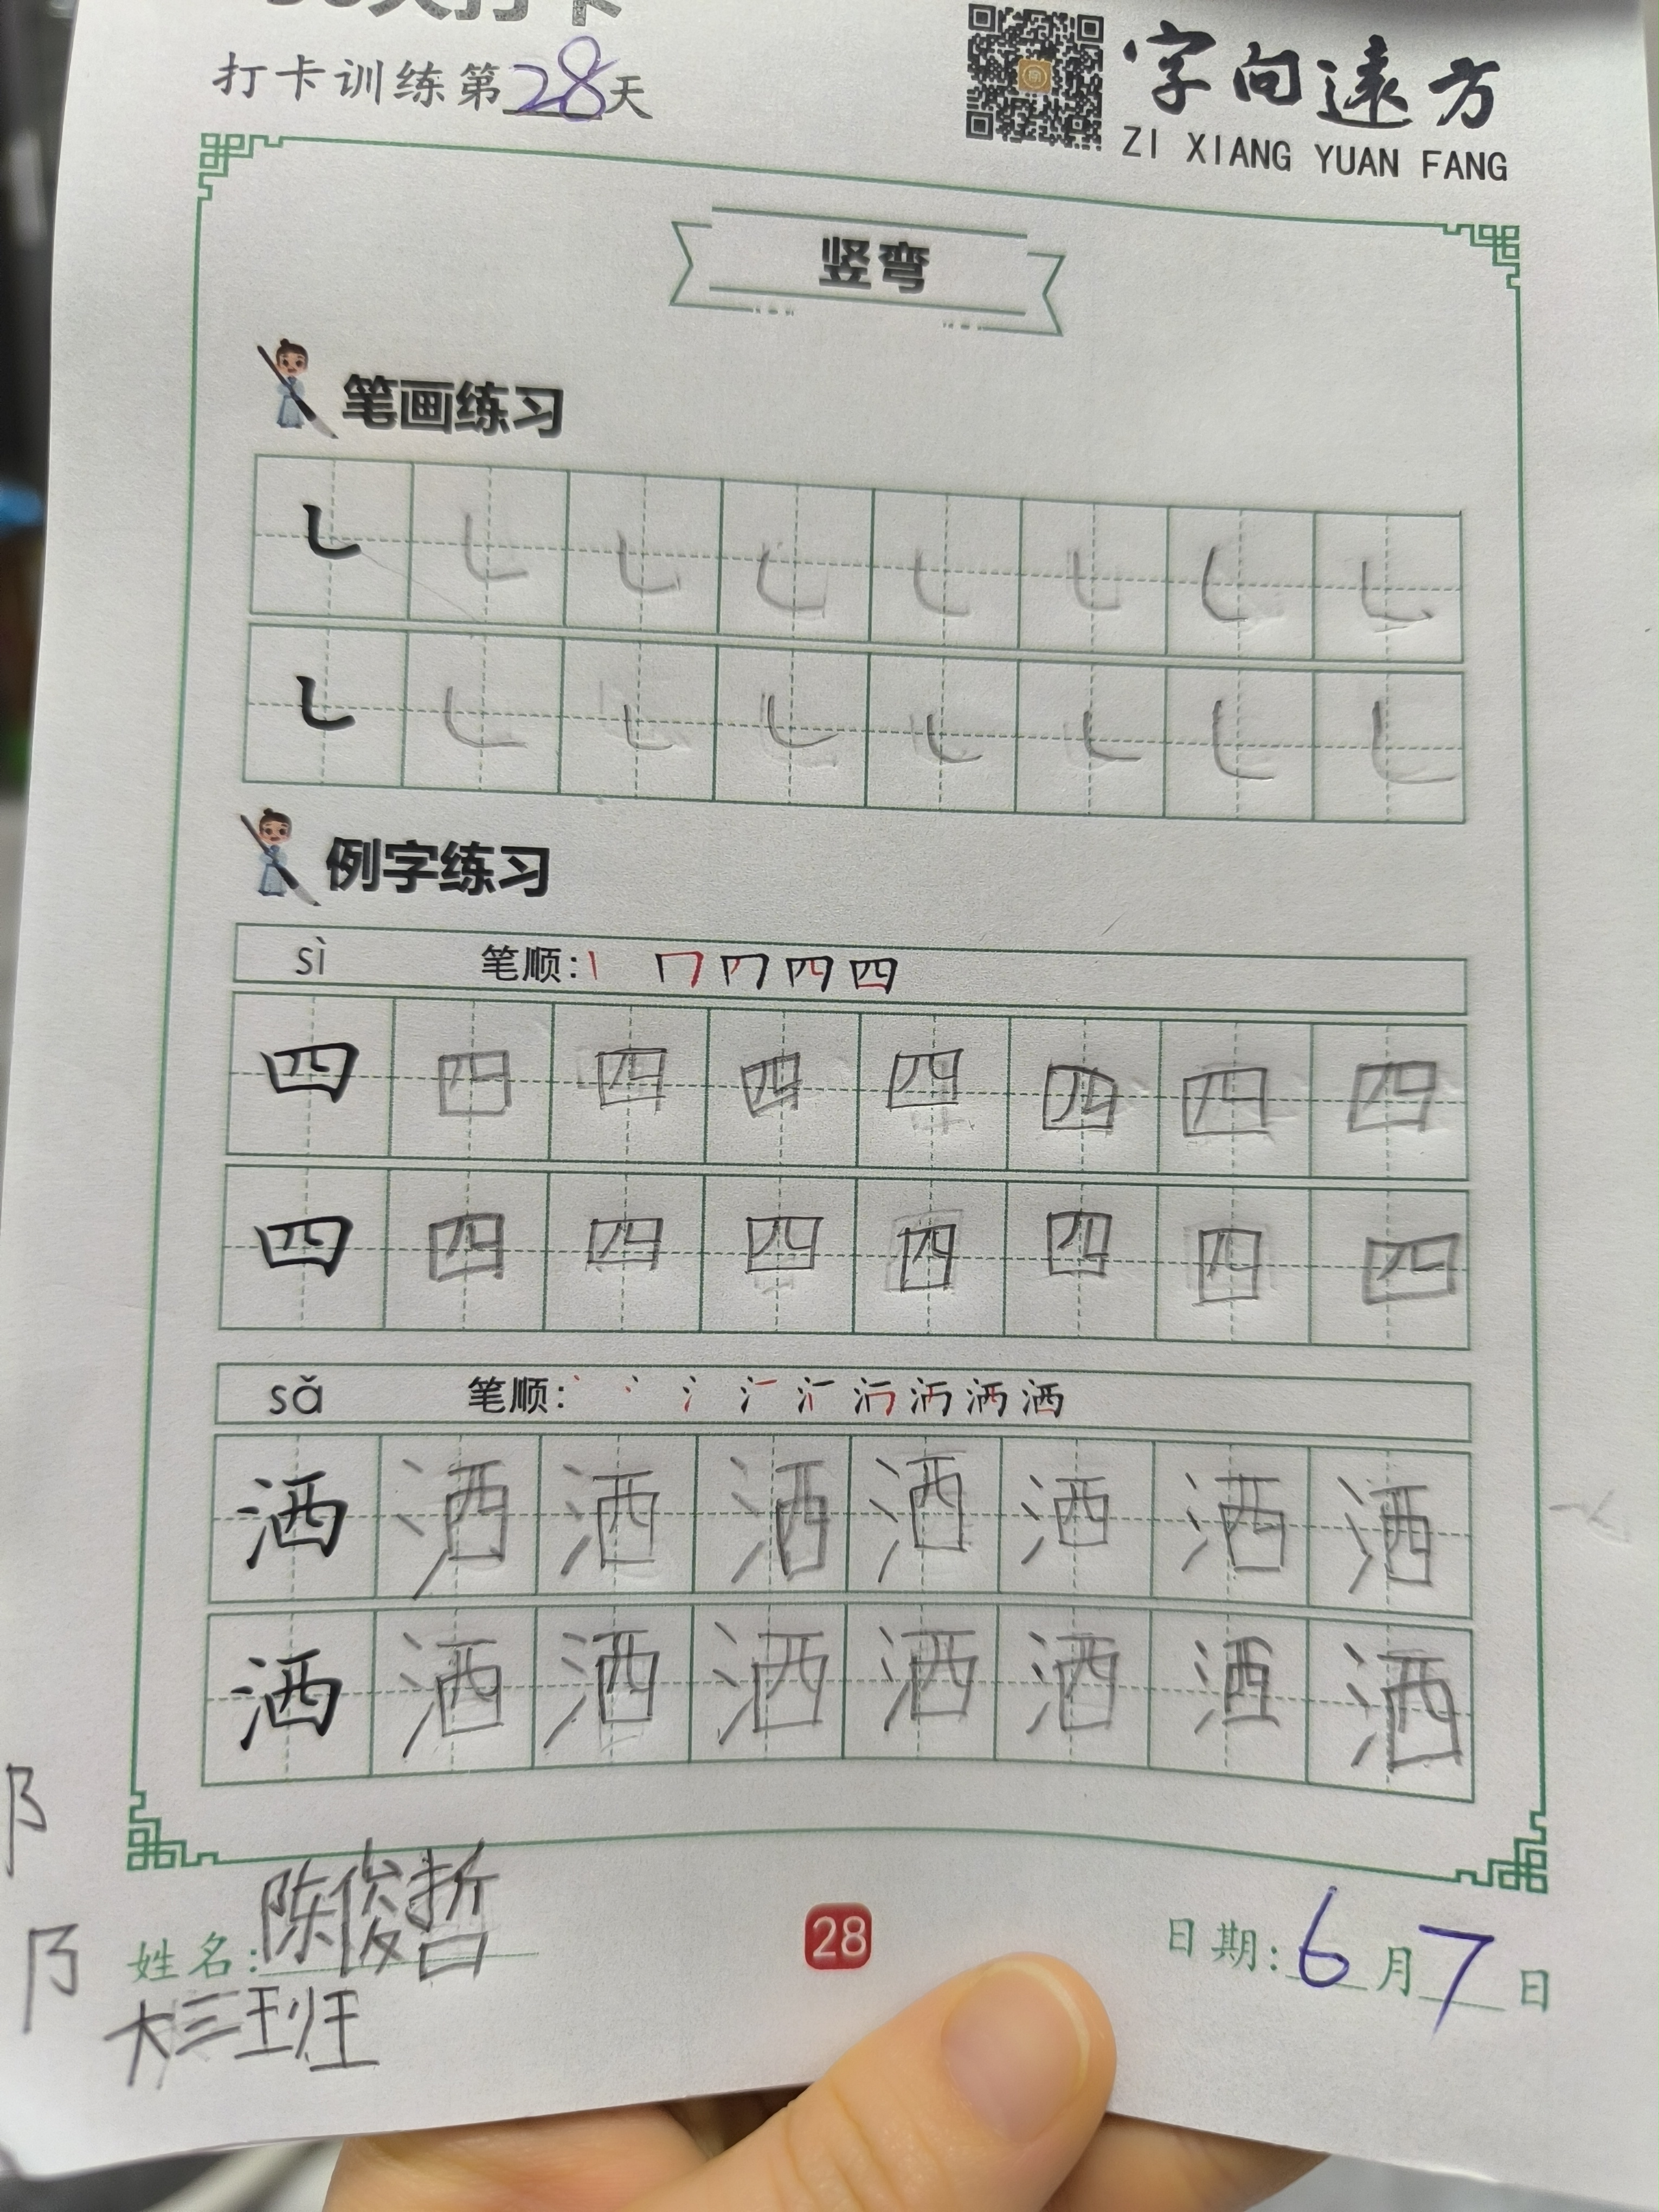 打卡训练第28天
字向遠方
ZI XIANG YUAN FANG
竖弯
笔画练习
例字练习
sì 笔顺:
四 四 四 四 四 四 四 四
四 四 四 四 四 四 四 四
sǎ 笔顺:
洒 洒 洒 洒 洒 洒 洒 洒
洒 洒 洒 洒 洒 洒 洒 洒
阝
阝
姓名:陈俊哲
大三班
28
日期:6月7日